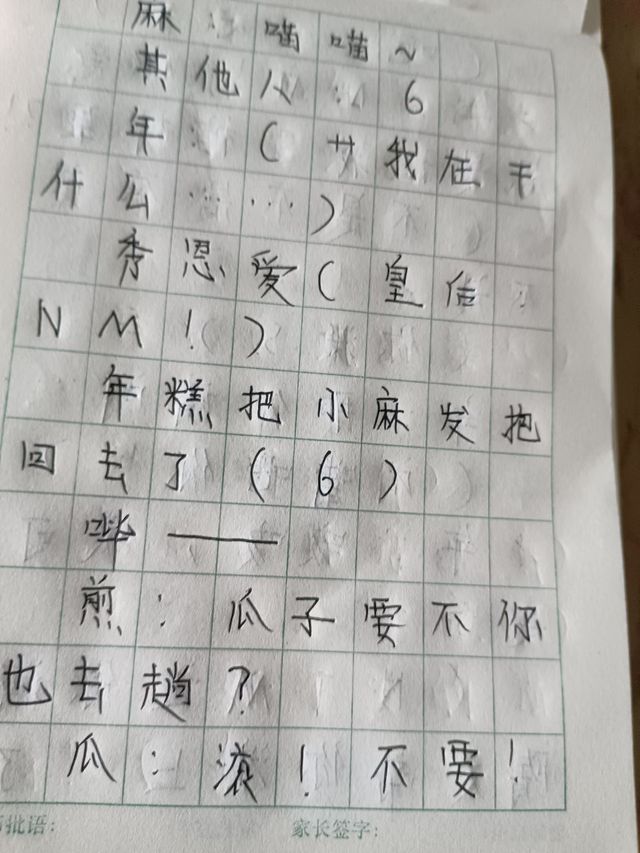 麻：喵喵~
其他人：6
年：（艹我在干
什么……）
秀恩爱（皇后：
NM！）
年糕把小麻发抱
回去了（6）
哗——
煎：瓜子要不你
也去趟？
瓜：滚！不要！
批语： 家长签字：